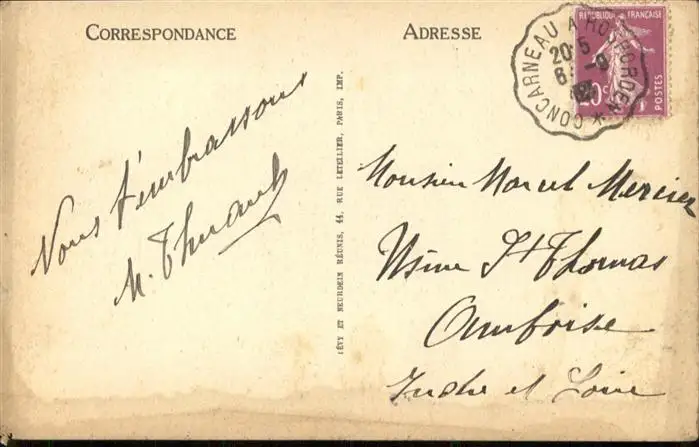 CORRESPONDANCE
ADRESSE
RÉPUBLIQUE FRANÇAISE
20c
POSTES
CONCARNEAU A ROSPORDEN *
20·5
Nous t'embrassons
Monsieur Marcel Mercier
Usine St Thomas
Amboise
Indre et Loire
LÉVY ET NEURDEIN RÉUNIS, 44, RUE LETELLIER, PARIS, IMP.